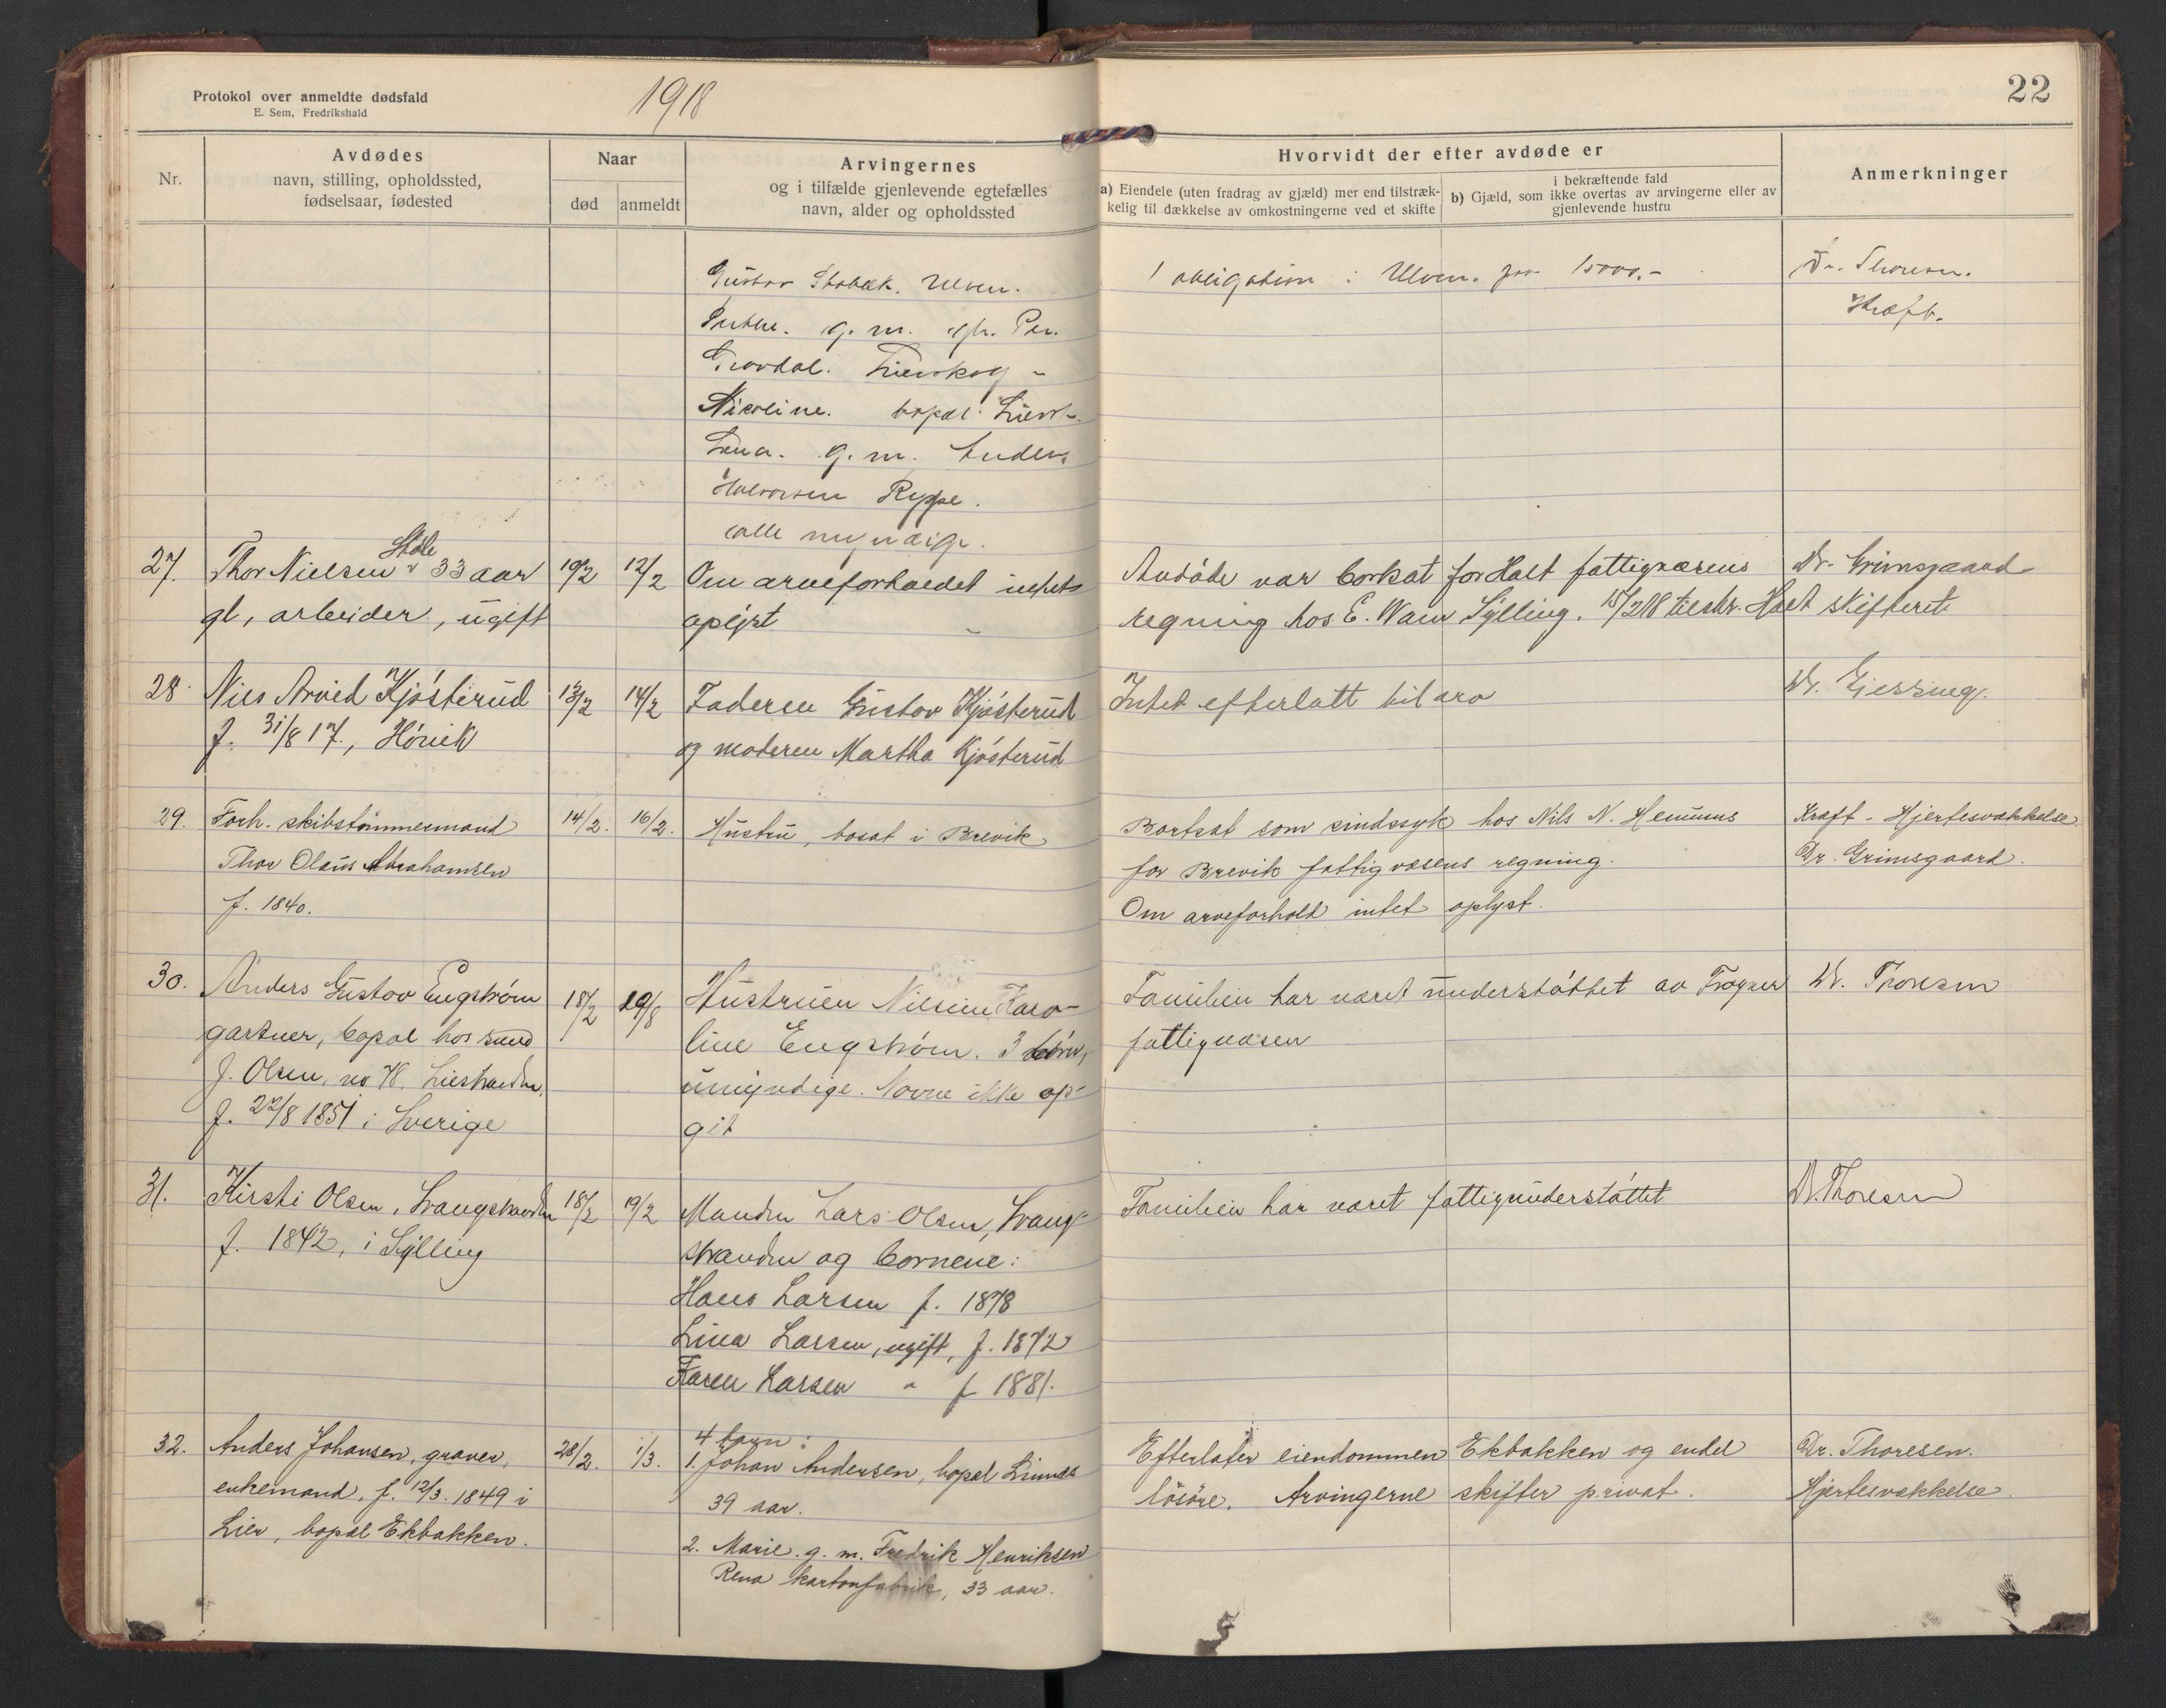 Protokol over anmeldte dødsfald
E. Sem, Fredrikshald
1918
22
Nr.
Avdødes
navn, stilling, opholdssted,
fødselsaar, fødested
Naar
død
anmeldt
Arvingernes
og i tilfælde gjenlevende egtefælles
navn, alder og opholdssted
Hvorvidt der efter avdøde er
a) Eiendele (uten fradrag av gjæld) mer end tilstræk-
kelig til dækkelse av omkostningerne ved et skifte
i bekræftende fald
b) Gjæld, som ikke overtas av arvingerne eller av
gjenlevende hustru
Anmerkninger
Gustav Ulven.
g. m. Per.
Lierskog -
Nicoline. bopæl Lier -
g. m. Anders
Halvorsen Ryppe.
alle myndige.
1 obligation i Ulven. paa 15000.-
Dr. Thoresen.
Kræft.
27.
Støle
Thor Nielsen v 33 aar
gl, arbeider, ugift
10/2
12/2
Om arveforholdet intet
oplyst
Avdøde var bortsat for Holt fattigvæsens
regning hos E. Wam Sylling. 15/2 18 tilskr. Holt skifteret
Dr. Grimsgaard
28.
Nils Arvid Kjøsterud
f. 31/8 17, Hørik
13/2
14/2
Faderen Gustav Kjøsterud
og moderen Martha Kjøsterud
Intet efterlatt til arv
Dr. Giessing.
29.
Forh. skibstømmermand
Thor Olaus Abrahamsen
f. 1840.
14/2.
16/2.
Hustru, bosat i Brevik
Bortsat som sindssyk hos Nils N. Hennums
for Brevik fattigvæsens regning.
Om arveforhold intet oplyst.
Kræft - Hjertesvækkelse
Dr. Grimsgaard.
30.
Anders Gustav Engstrøm
gartner, bopæl hos
J. Olsen, Lierstranden,
f. 22/8 1851 i Sverige
18/2
19/8
Hustruen Nilsine Karo-
line Engstrøm. 3 børn,
umyndige. Navne ikke op-
git
Familien har været understøttet av Frogner
fattigvæsen
Dr. Thoresen
31.
Kirsti Olsen, Svangstranden
f. 1842, i Sylling
18/2
19/2
Manden Lars Olsen, Svang-
stranden og børnene:
Hans Larsen f. 1878
Lina Larsen, ugift, f. 1872
Karen Larsen " f 1881.
Familien har været fattigunderstøttet
Dr. Thoresen
32.
Anders Johansen, graver,
enkemand, f. 12/3. 1849 i
Lier, bopæl Ekbakken.
28/2.
1/3.
4 barn:
1. Johan Andersen, bopæl Linnes
39 aar.
2. Marie. g. m. Fredrik Henriksen
Rena kartonfabrik, 33 aar.
Efterlater eiendommen Ekbakken og endel
løsøre. Arvingerne skifter privat.
Dr. Thoresen.
Hjertesvækkelse